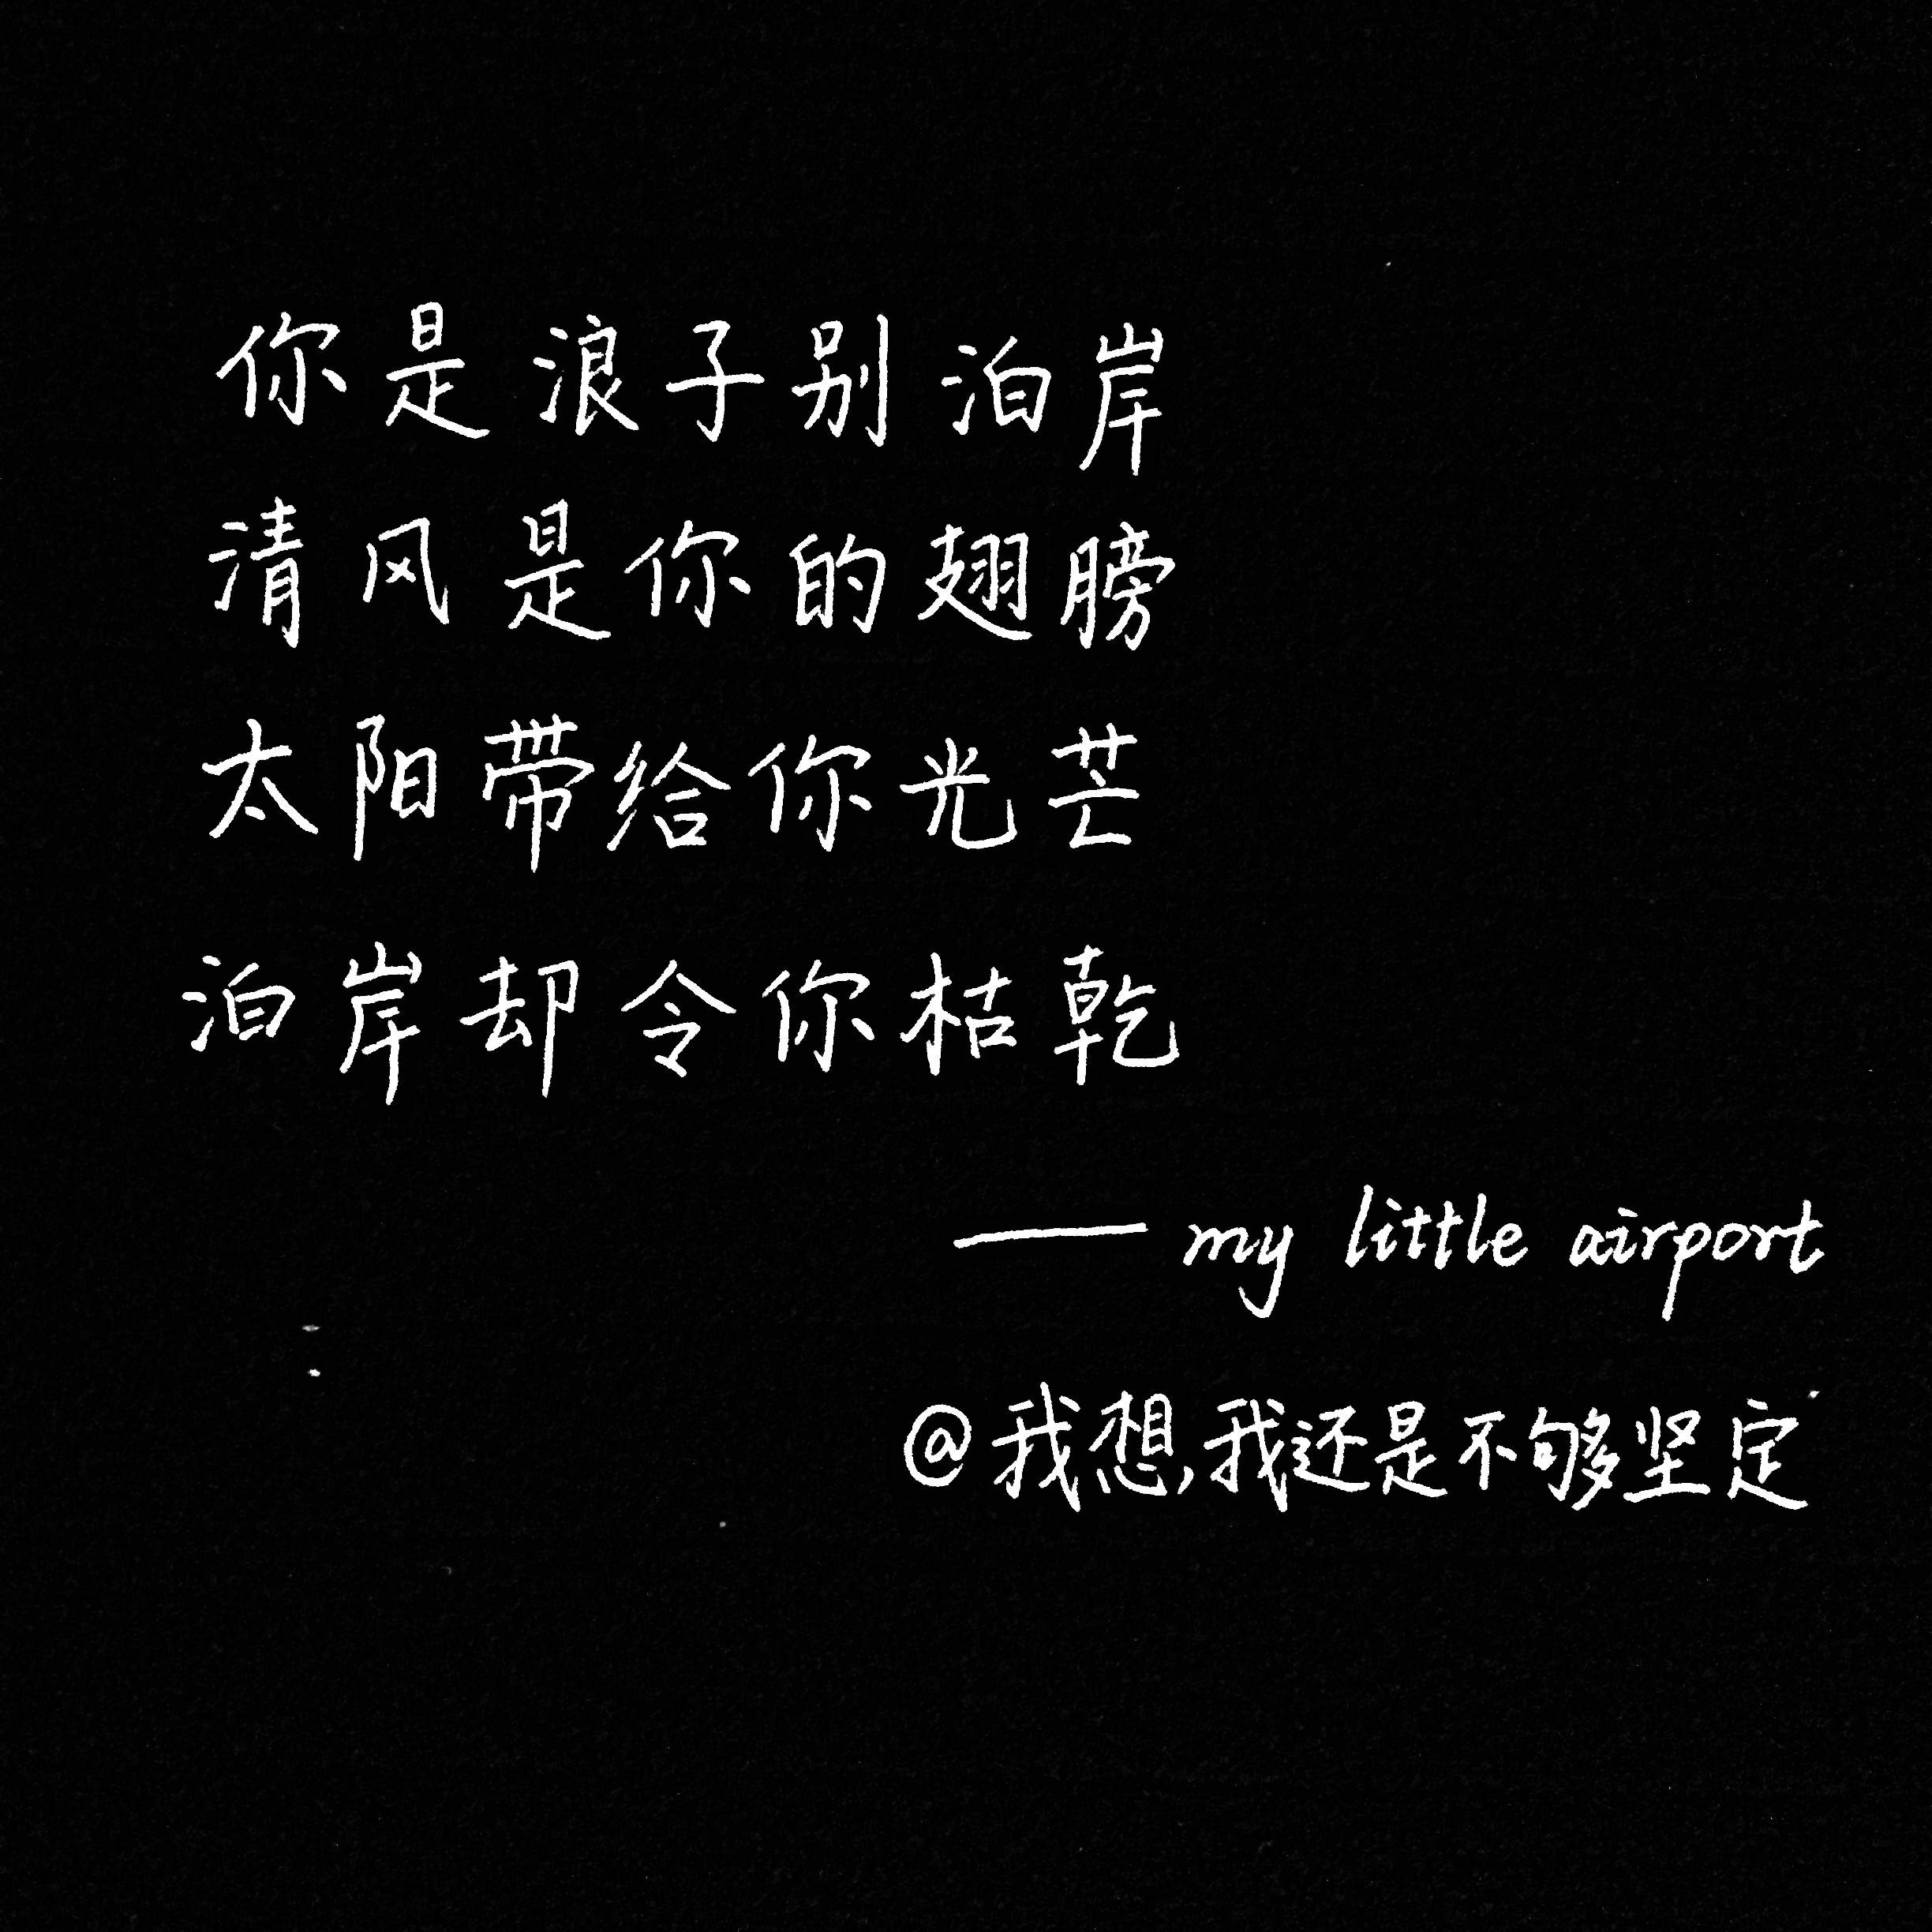 你是浪子别泊岸
清风是你的翅膀
太阳带给你光芒
泊岸却令你枯乾
—— my little airport
@我想,我还是不够坚定